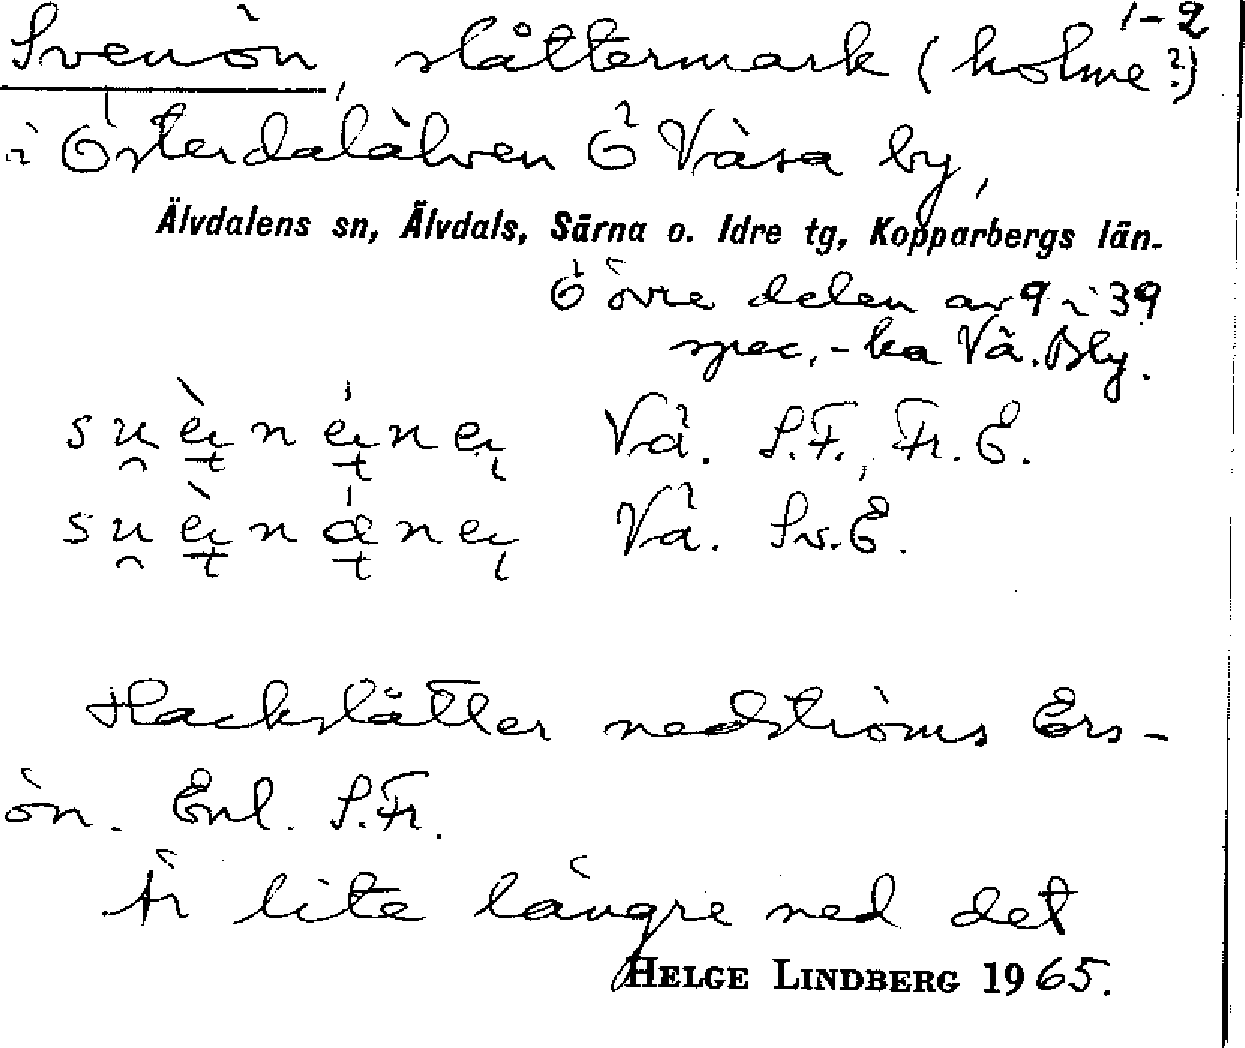 1-2
Svenön, slåttermark (holme?)
i Österdalälven Ö Våsa by,
Älvdalens sn, Älvdals, Särna o. Idre tg, Kopparbergs län.
Ö övre delen av 9 i 39
spec.-ka Vå. Bly.
Vå. S.F., Fr. E.
Vå. Sv.E.
Hackslåtter nedströms Ers-
ön. Enl. S.Fr.
Är lite längre ned det
HELGE LINDBERG 1965.